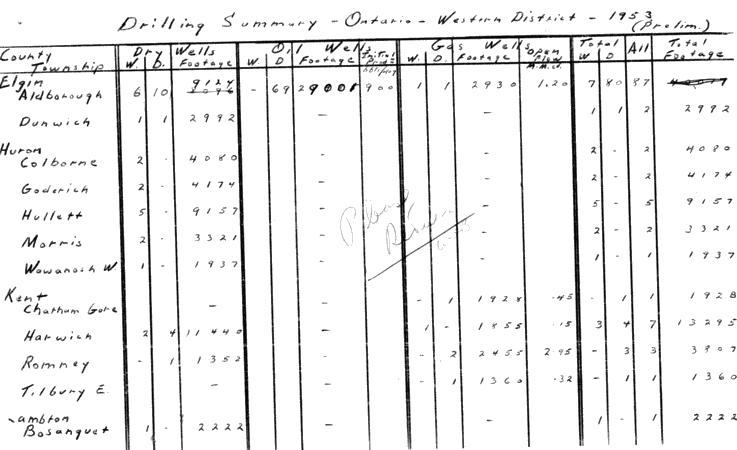 Drilling Summary - Ontario - Western District - 1953
(Prelim.)
County Township Dry Wells W. D. Footage Oil Wells W. D Footage Initial Prod. bbl/day Gas Wells W. D. Footage Open Flow M.M.cf. Total W D All Total Footage
Elgin
Aldborough 6 10 9127 - 69 29001 900 1 1 2930 1.20 7 80 87
Dunwich 1 1 2992 - - 1 1 2 2992
Huron
Colborne 2 - 4080 - - 2 - 2 4080
Goderich 2 - 4174 - - 2 - 2 4174
Hullett 5 - 9157 - - 5 - 5 9157
Morris 2 - 3321 - - 2 - 2 3321
Wawanosh W 1 - 1937 - - 1 - 1 1937
Kent
Chatham Gore - - - 1 1928 .45 - 1 1 1928
Harwich 2 4 11440 - 1 - 1855 .15 3 4 7 13295
Romney - 1 1352 - - 2 2455 2.95 - 3 3 3807
Tilbury E. - - - 1 1360 .32 - 1 1 1360
ambton
Bosanquet 1 - 2222 - - 1 - 1 2222